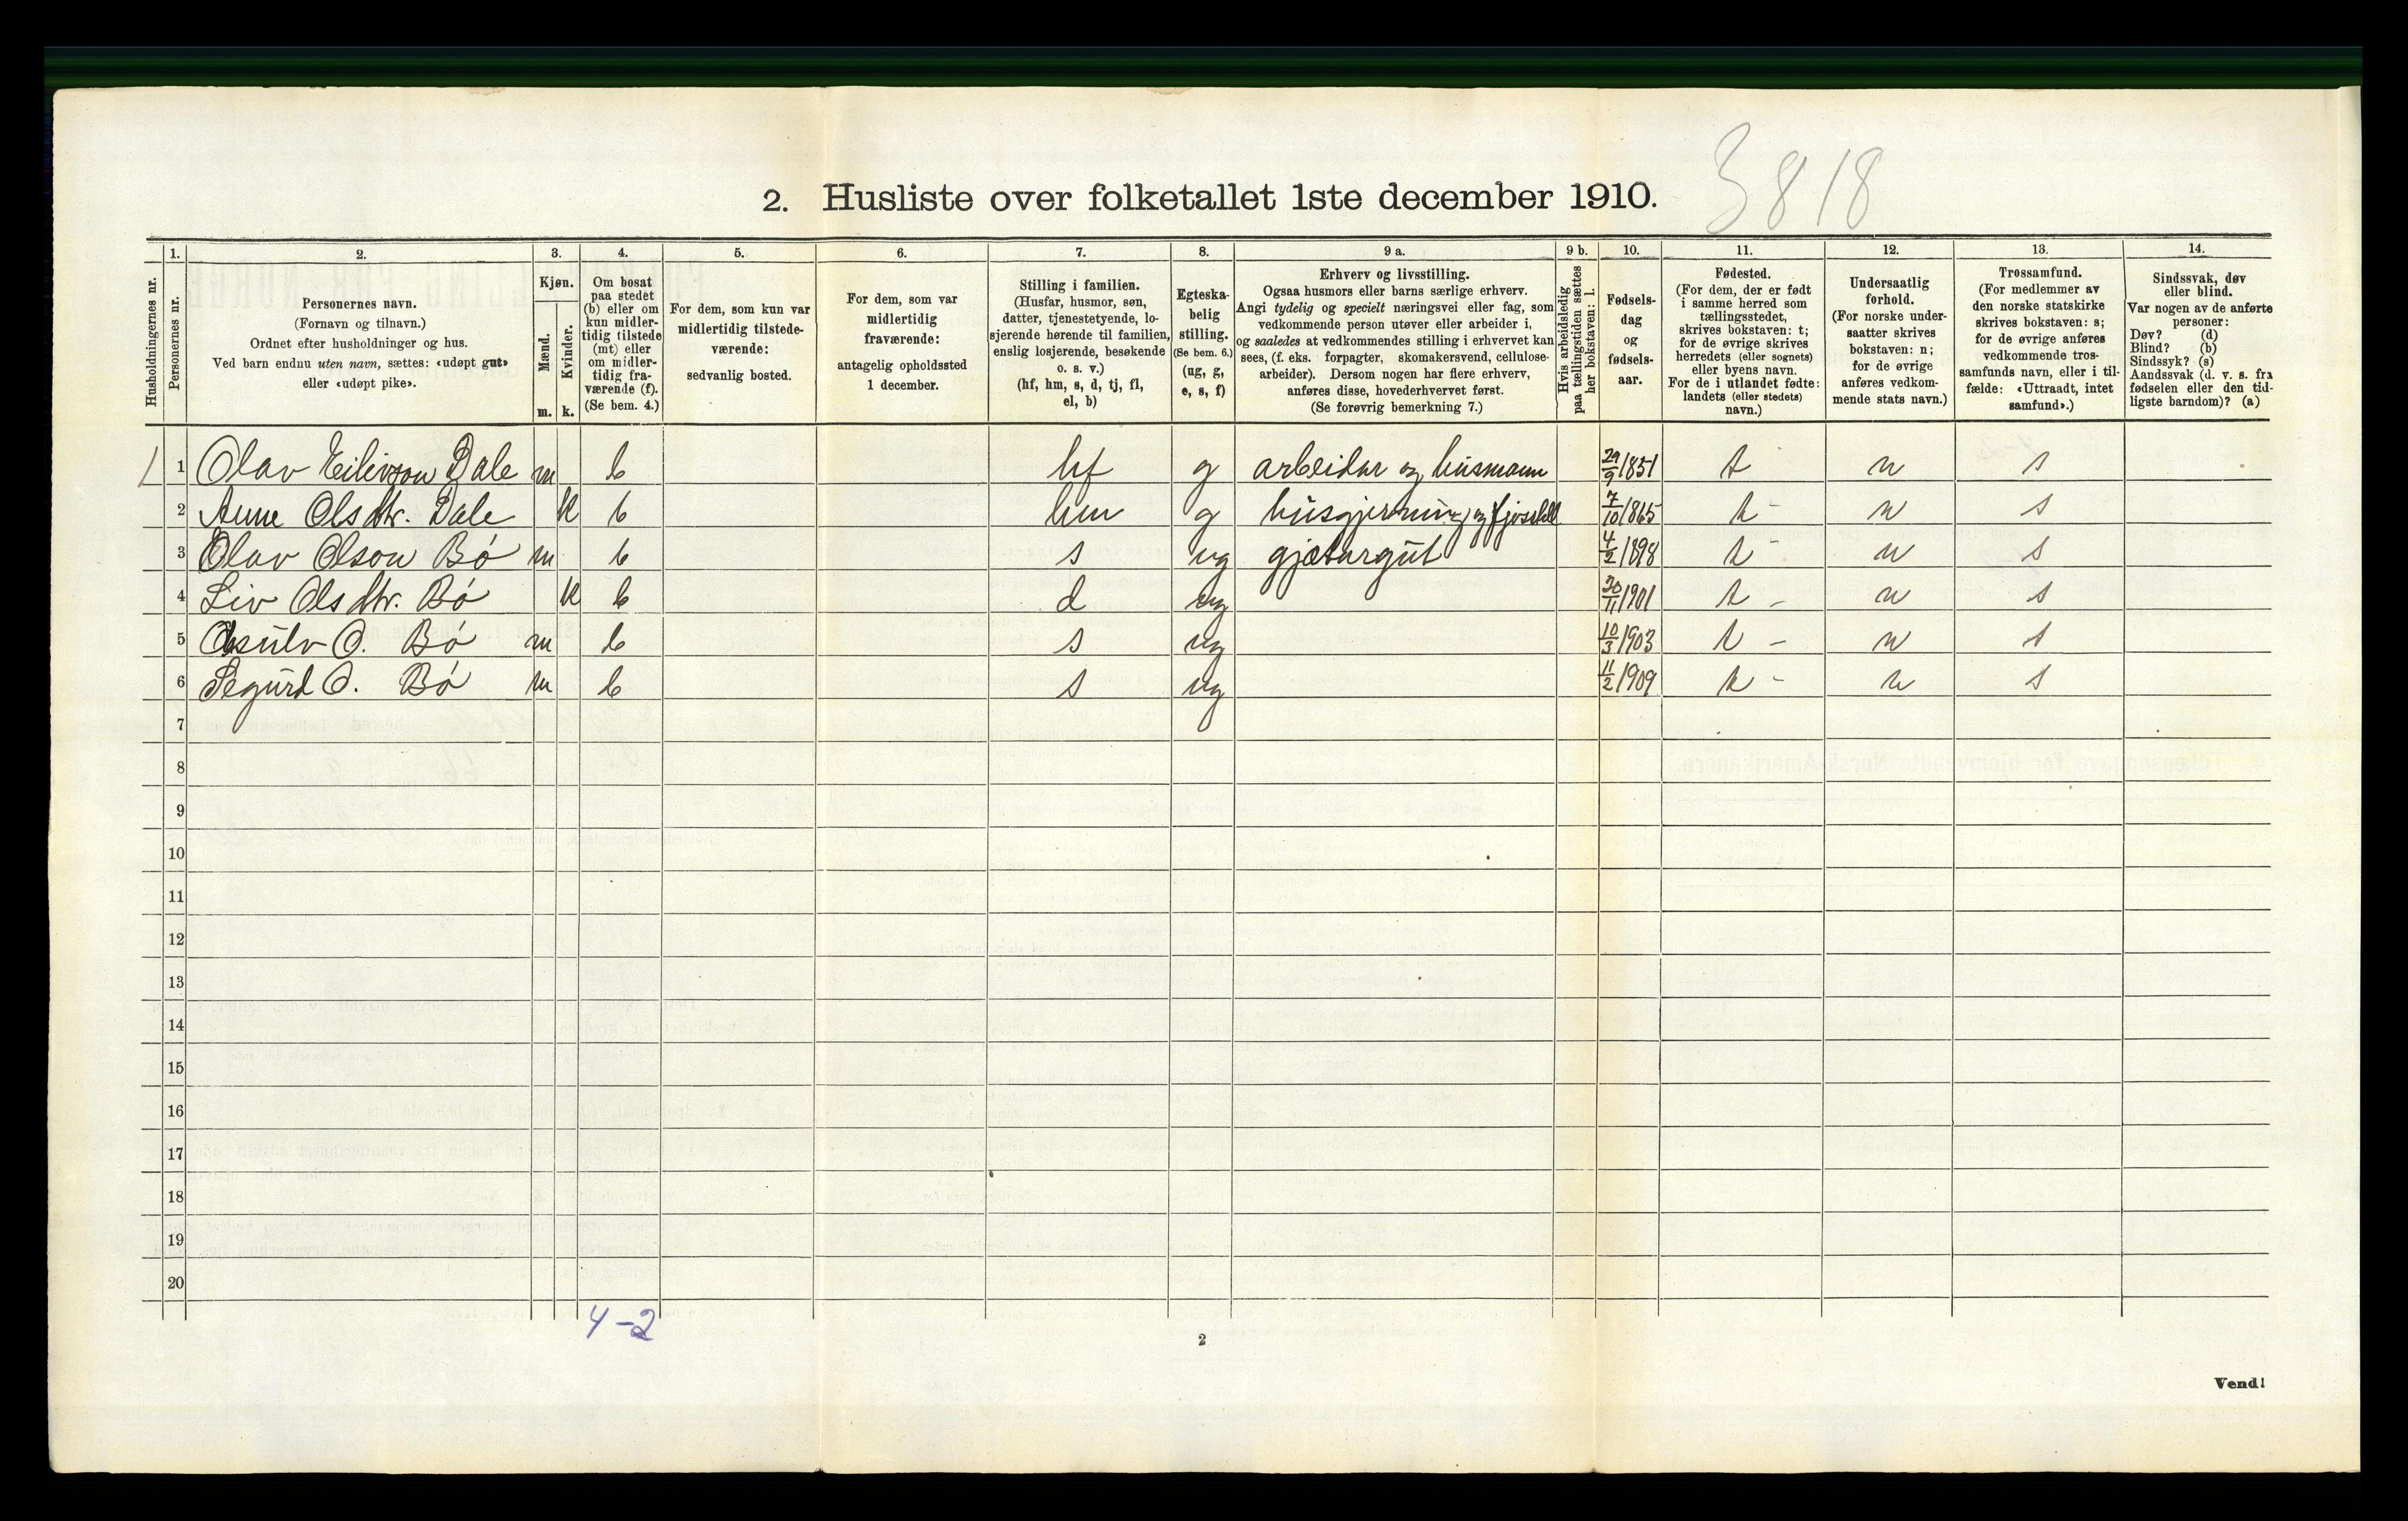 3818
2. Husliste over folketallet 1ste december 1910.
Husholdningernes nr.
1.
Personernes nr.
2.
Personernes navn.
(Fornavn og tilnavn.)
Ordnet efter husholdninger og hus.
Ved barn endnu uten navn, sættes: «udøpt gut»
eller «udøpt pike».
3.
Kjøn.
Mænd.
Kvinder.
m. k.
4.
Om bosat
paa stedet
(b) eller om
kun midler-
tidig tilstede
(mt) eller
om midler-
tidig fra-
værende (f).
(Se bem. 4.)
5.
For dem, som kun var
midlertidig tilstede-
værende:
sedvanlig bosted.
6.
For dem, som var
midlertidig
fraværende:
antagelig opholdssted
1 december.
7.
Stilling i familien.
(Husfar, husmor, søn,
datter, tjenestetyende, lo-
sjerende hørende til familien,
enslig losjerende, besøkende
o. s. v.)
(hf, hm, s, d, tj, fl,
el, b)
8.
Egteska-
belig
stilling.
(Se bem. 6.)
(ug, g,
e, s, f)
9 a.
Erhverv og livsstilling.
Ogsaa husmors eller barns særlige erhverv.
Angi tydelig og specielt næringsvei eller fag, som
vedkommende person utøver eller arbeider i,
og saaledes at vedkommendes stilling i erhvervet kan
sees, (f. eks. forpagter, skomakersvend, cellulose-
arbeider). Dersom nogen har flere erhverv,
anføres disse, hovederhvervet først.
(Se forøvrig bemerkning 7.)
9 b.
Hvis arbeidsledig
paa tællingstiden sættes
her bokstaven: l.
10.
Fødsels-
dag
og
fødsels-
aar.
11.
Fødested.
(For dem, der er født
i samme herred som
tællingsstedet,
skrives bokstaven: t;
for de øvrige skrives
herredets (eller sognets)
eller byens navn.
For de i utlandet fødte:
landets (eller stedets)
navn.)
12.
Undersaatlig
forhold.
(For norske under-
saatter skrives
bokstaven: n;
for de øvrige
anføres vedkom-
mende stats navn.)
13.
Trossamfund.
(For medlemmer av
den norske statskirke
skrives bokstaven: s;
for de øvrige anføres
vedkommende tros-
samfunds navn, eller i til-
fælde: «Uttraadt, intet
samfund».)
14.
Sindssvak, døv
eller blind.
Var nogen av de anførte
personer:
Døv? (d)
Blind? (b)
Sindssyk? (s)
Aandssvak (d. v. s. fra
fødselen eller den tid-
ligste barndom)? (a)
1 1 Olav Eilivson Dale m b hf g arbeidar og husmann 29/9 1851 t n s
2 Anne Olsdtr. Dale k b hm g husgjerning og fjosstell 7/10 1865 t - n s
3 Olav Olson Bö m b s ug gjætargut 4/2 1898 t - n s
4 Liv Olsdtr. Bö k b d ug 30/11 1901 t - n s
5 Asulv O. Bö m b s ug 10/3 1903 t - n s
6 Segurd O. Bö m b s ug 11/2 1909 t - n s
7
8
9
10
11
12
13
14
15
16
17
18
19
20
4-2
2
Vend!